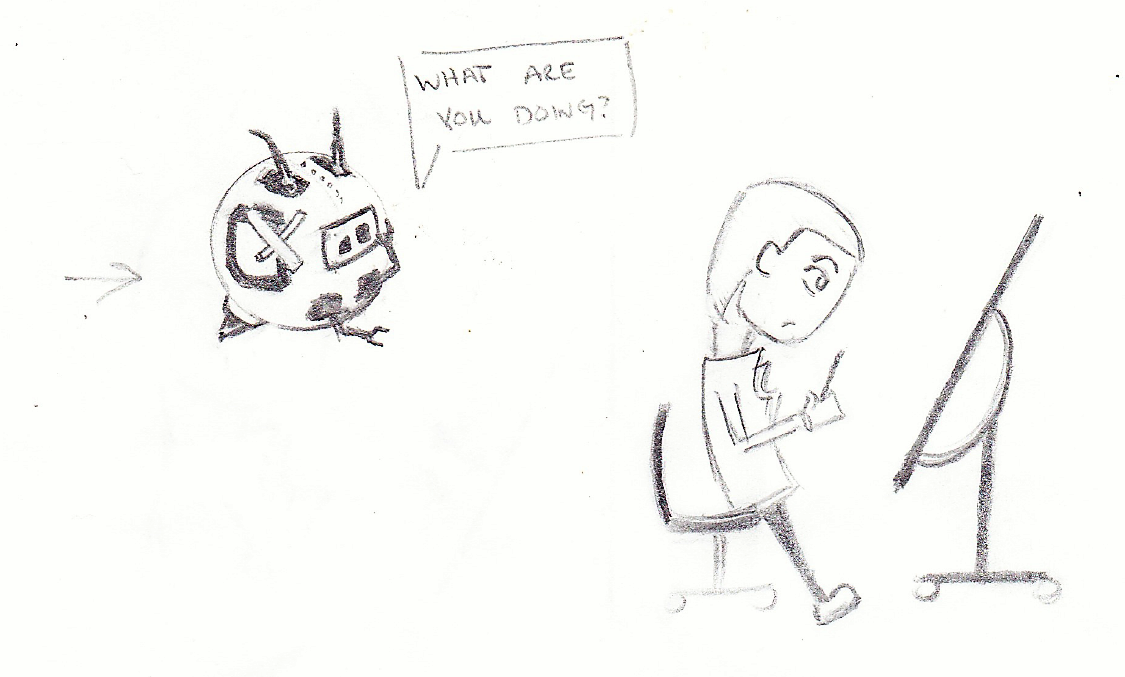 WHAT ARE
YOU DOING?